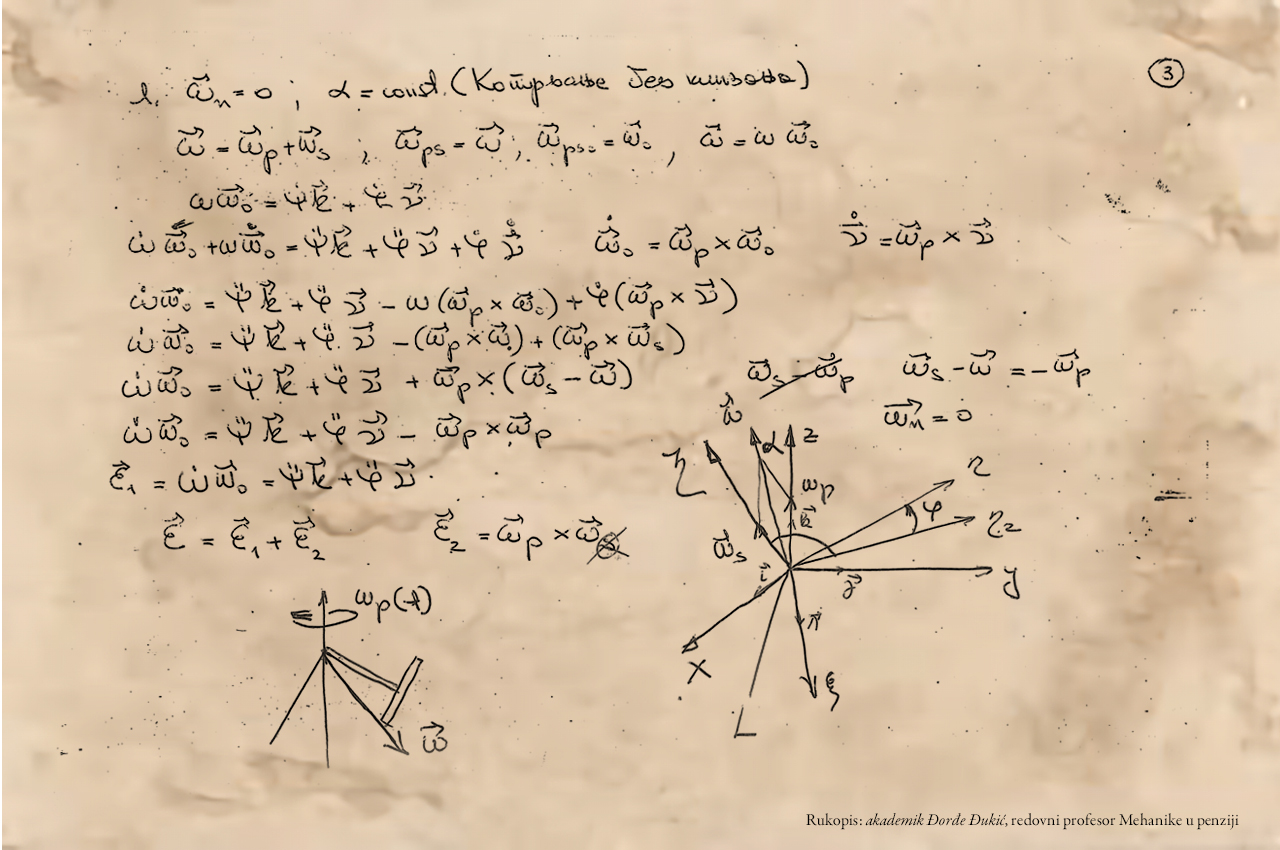 ③
1. ω⃗ₙ = 0 ; α = const. (Котрљање без клизања)
ω⃗ = ω⃗ₚ + ω⃗ₛ ; ω⃗ₚₛ = ω⃗ ; ω⃗ₚₛ₀ = ω⃗₀ , ω⃗ = ω ω⃗₀
ωω⃗₀ = ψ̇k⃗ + φ̇ ν⃗
ω̇ ω⃗₀ + ωω⃗̇₀ = ψ̈k⃗ + φ̈ ν⃗ + φ̇ ν⃗̊ ω⃗̇₀ = ω⃗ₚ × ω⃗₀ ν⃗̊ = ω⃗ₚ × ν⃗
ω̇ω⃗₀ = ψ̈ k⃗ + φ̈ ν⃗ - ω(ω⃗ₚ × ω⃗₀) + φ̇(ω⃗ₚ × ν⃗)
ω̇ ω⃗₀ = ψ̈ k⃗ + φ̈ ν⃗ - (ω⃗ₚ × ω⃗) + (ω⃗ₚ × ω⃗ₛ)
ω̇ ω⃗₀ = ψ̈ k⃗ + φ̈ ν⃗ + ω⃗ₚ × (ω⃗ₛ - ω⃗) ω⃗ₛ - ω⃗ₚ ω⃗ₛ - ω⃗ = -ω⃗ₚ
ω̇ ω⃗₀ = ψ̈ k⃗ + φ̈ ν⃗ - ω⃗ₚ × ω⃗ₚ
ω⃗ₙ = 0
ε⃗₁ = ω̇ω⃗₀ = ψ̈k⃗ + φ̈ ν⃗
ε⃗ = ε⃗₁ + ε⃗₂ ε⃗₂ = ω⃗ₚ × ω⃗
ω⃗
α
z
ζ
η
ωₚ
k⃗
φ
η₂
ω⃗ₛ
i⃗
j⃗
y
n⃗
x
ξ
L
ωₚ(t)
ω⃗
Rukopis: akademik Đorđe Đukić, redovni profesor Mehanike u penziji